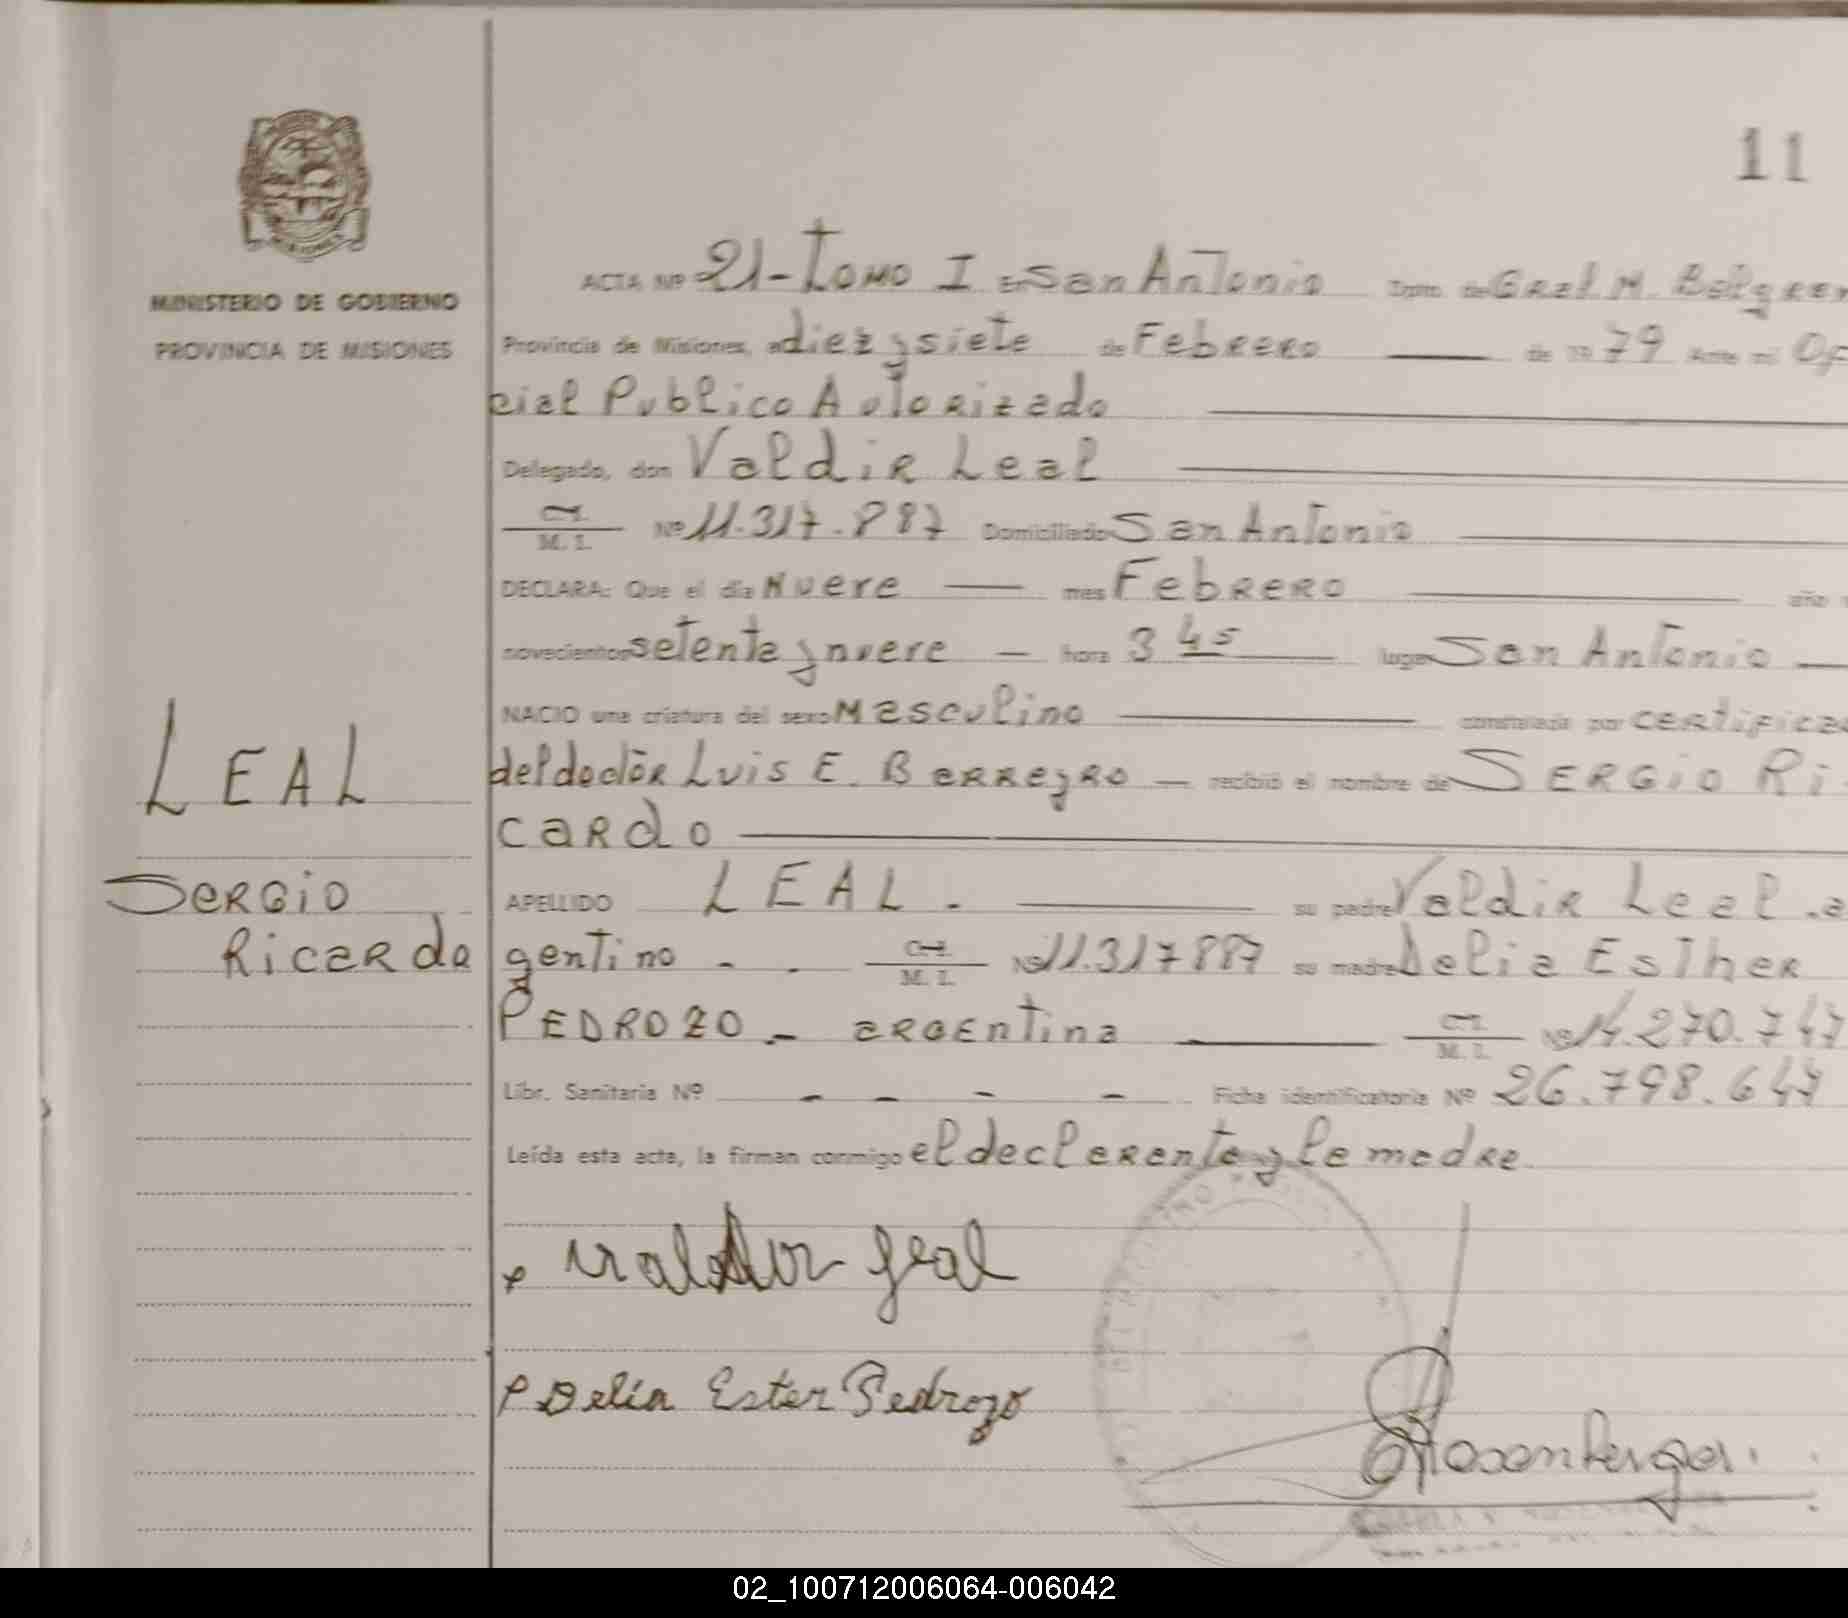 11
MINISTERIO DE GOBIERNO
PROVINCIA DE MISIONES
ACTA Nº 21 - Tomo I En San Antonio Dpto. de Gral M. Belgran
Provincia de Misiones, a diez y siete de Febrero — de 19 79 Ante mí Ofi
cial Publico Autorizado
Delegado, don Valdir Leal
C.I.
M. I. Nº 11.317.887 Domiciliado San Antonio
DECLARA: Que el día Nueve — mes Febrero — año
novecientos setenta y nueve — hora 3 45 — lugar San Antonio —
NACIO una criatura del sexo Masculino — constatada por certifica
del doctor Luis E. Barreyro — recibió el nombre de SERGIO Ri-
cardo
LEAL
SERGIO
Ricardo
APELLIDO LEAL. — su padre Valdir Leal. a
gentino - - C.I. M. I. Nº 11.317887 su madre Delia Esther
PEDROZO - argentina — C.I. M. I. Nº 14.270.747
Libr. Sanitaria Nº - - - - Ficha identificatoria Nº 26.798.647
Leída esta acta, la firman conmigo el declarante y la madre.
Valdir Leal
Delia Ester Pedrozo
02_100712006064-006042